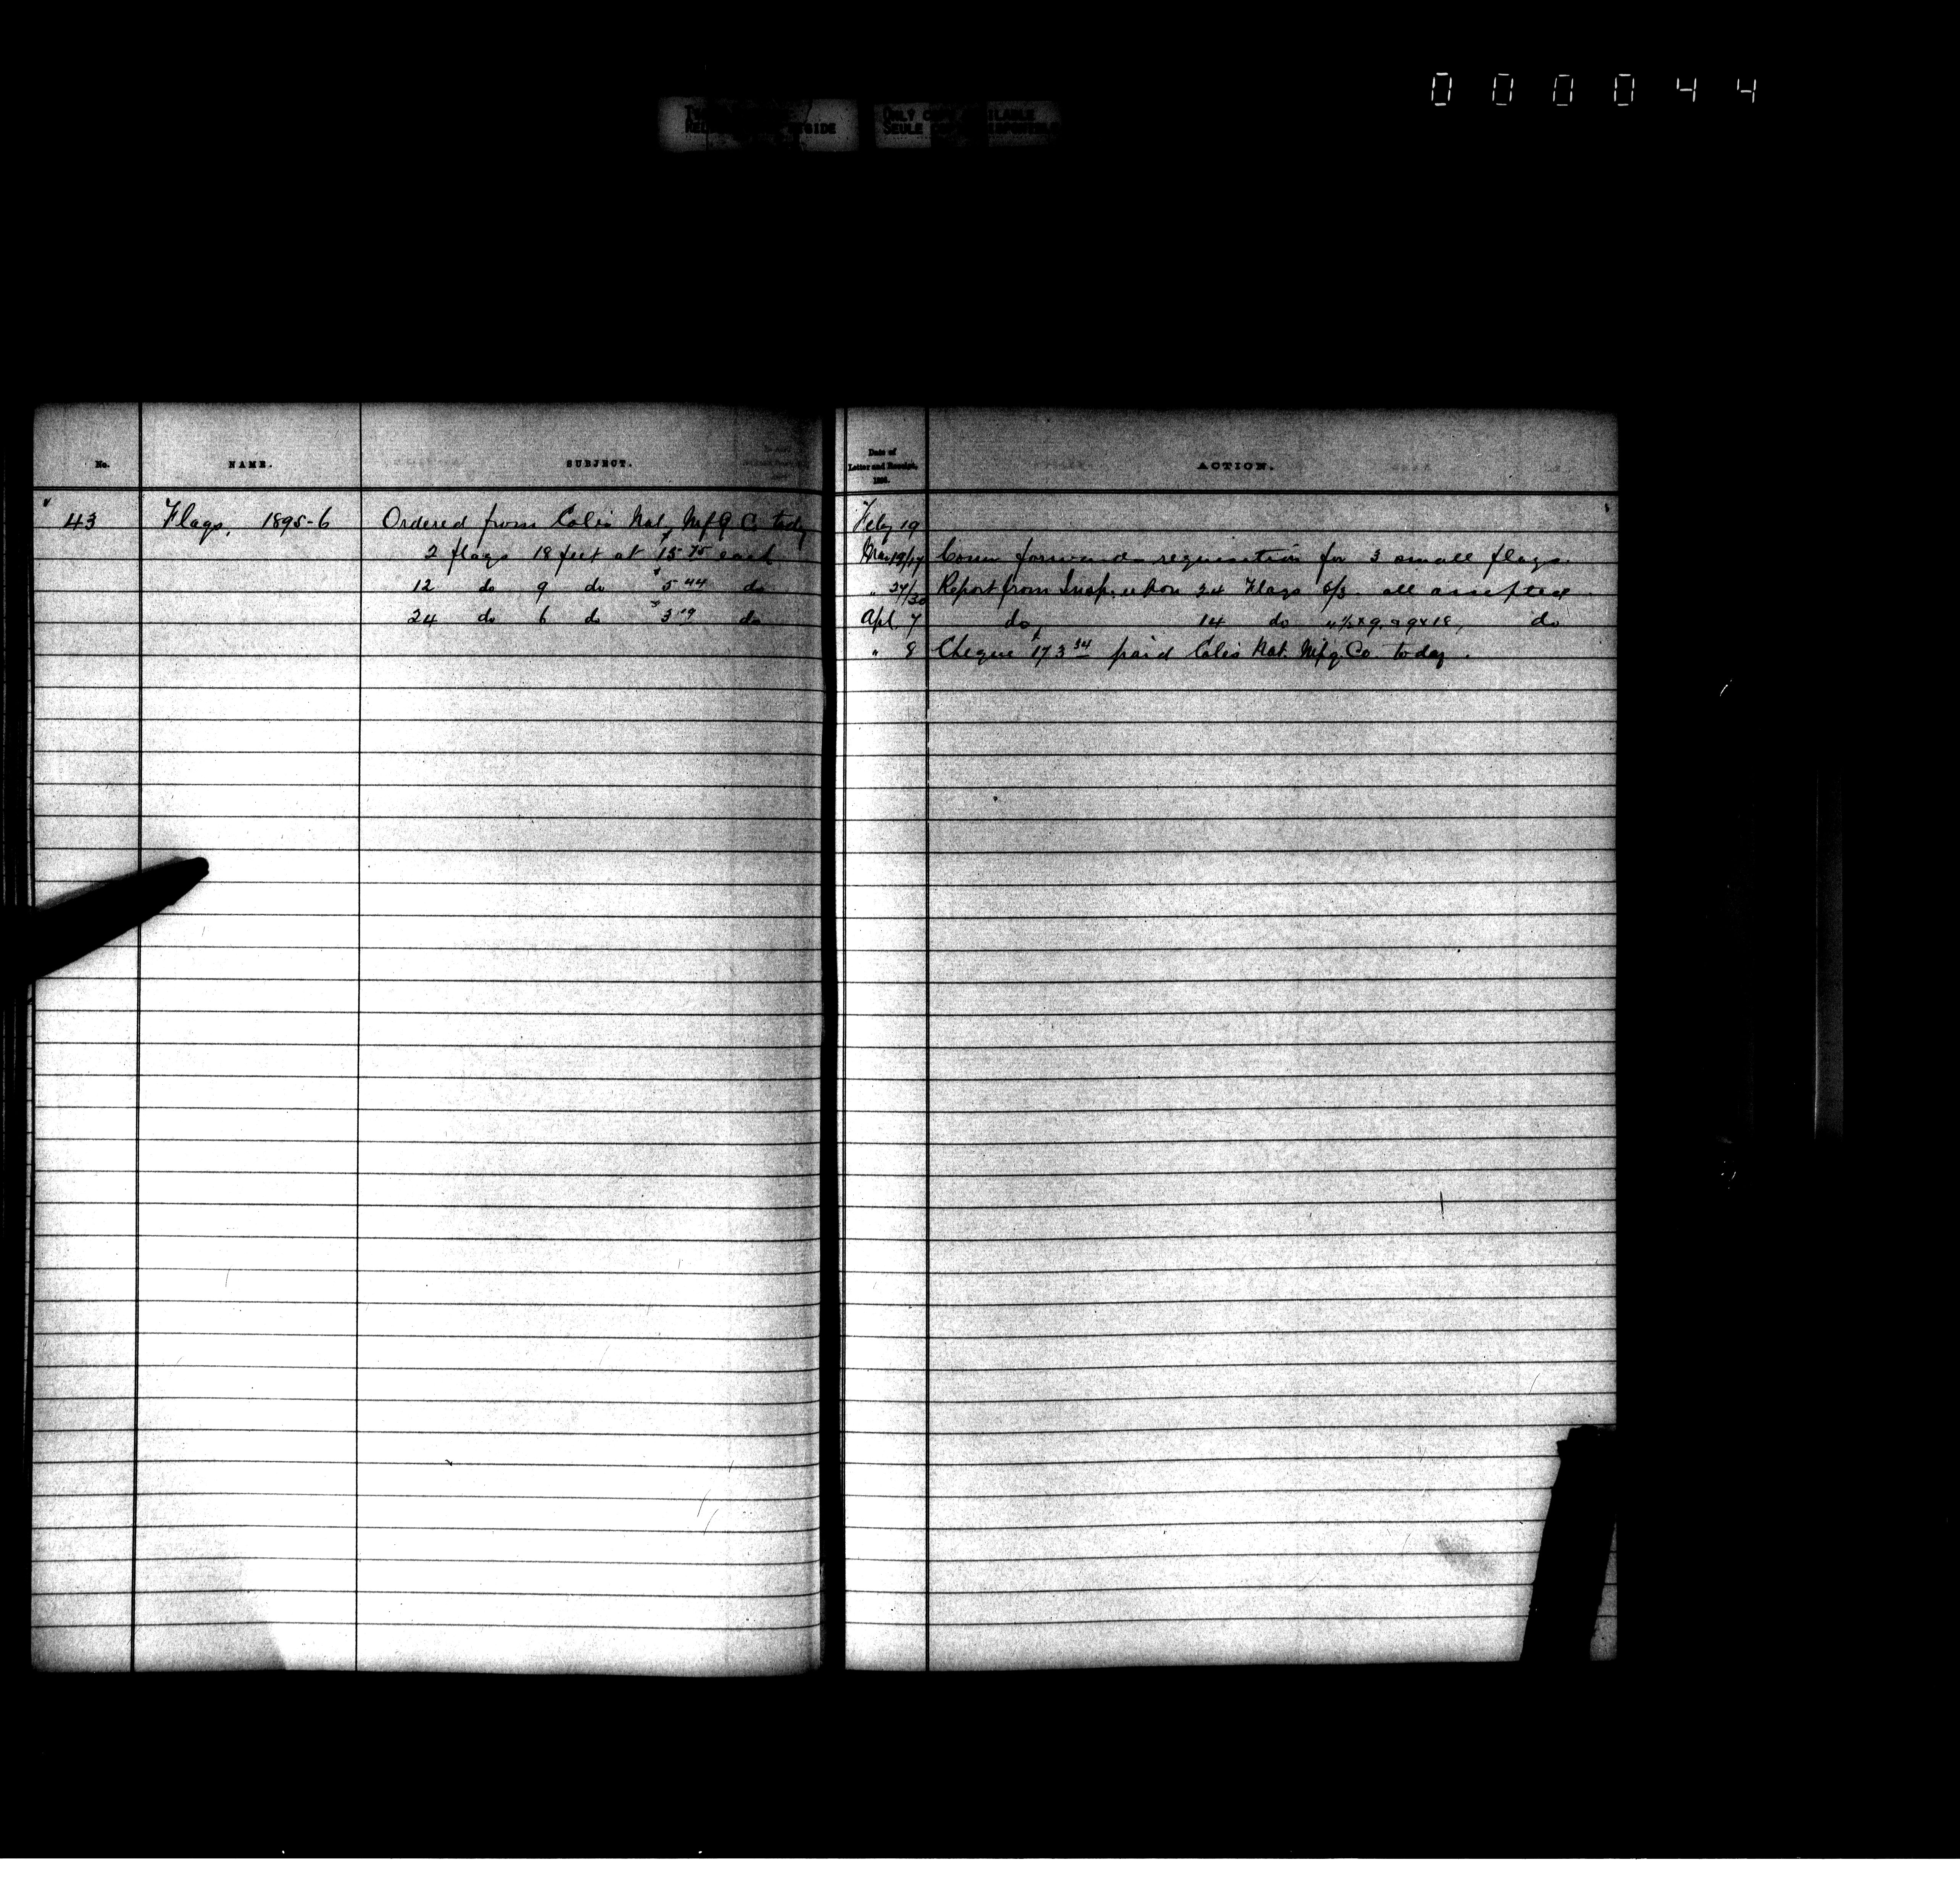 0 0 0 0 4 4
ONLY COPY AVAILABLE
SEULE
No.
NAME.
SUBJECT.
Date of
Letter and Receipt.
189 .
ACTION.
43 Flags, 1895-6 Ordered from Colis Nat. Mfg Co. today
2 flags 18 feet at $15.75 each
12 do 9 do $5.44 do
24 do 6 do $3.19 do
Feby 19
Mar 19/19 Comr forwards requisition for 3 small flags.
" 27/30 Report from Insp. upon 24 Flags 6/3 all accepted.
Apl. 7 do, 14 do 4½ x 9, & 9 x 18, do
" 8 Cheque $173.34 paid Colis Nat. Mfg. Co. today.